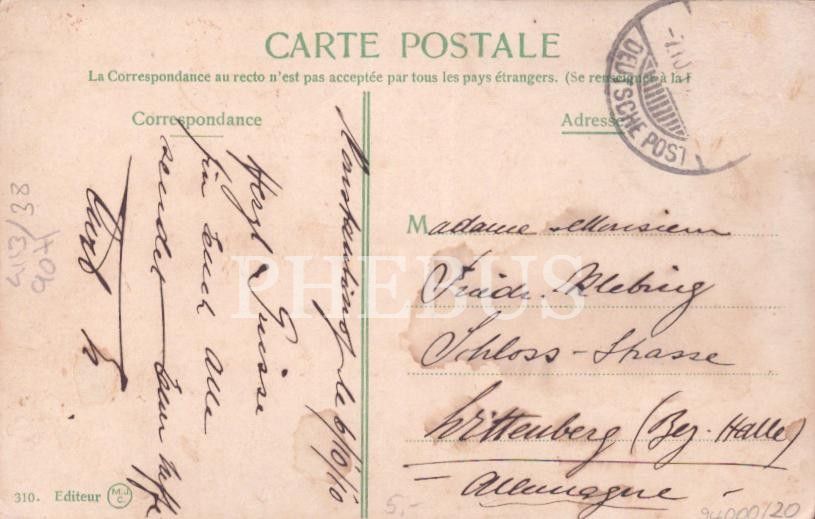 CARTE POSTALE
La Correspondance au recto n'est pas acceptée par tous les pays étrangers. (Se renseigner à la P
Correspondance
Adresse
DEUTSCHE POST
le 6/10/10
Herzl. Grüsse
für Euch Alle
sendet Euer Neffe
Madame Monsieur
Friedr. Klebing
Schloss-Strasse
Wittenberg (Bez. Halle)
- Allemagne -
4113/38
904
310. Editeur M.J.C.
5,-
94000/20
PHEBUS